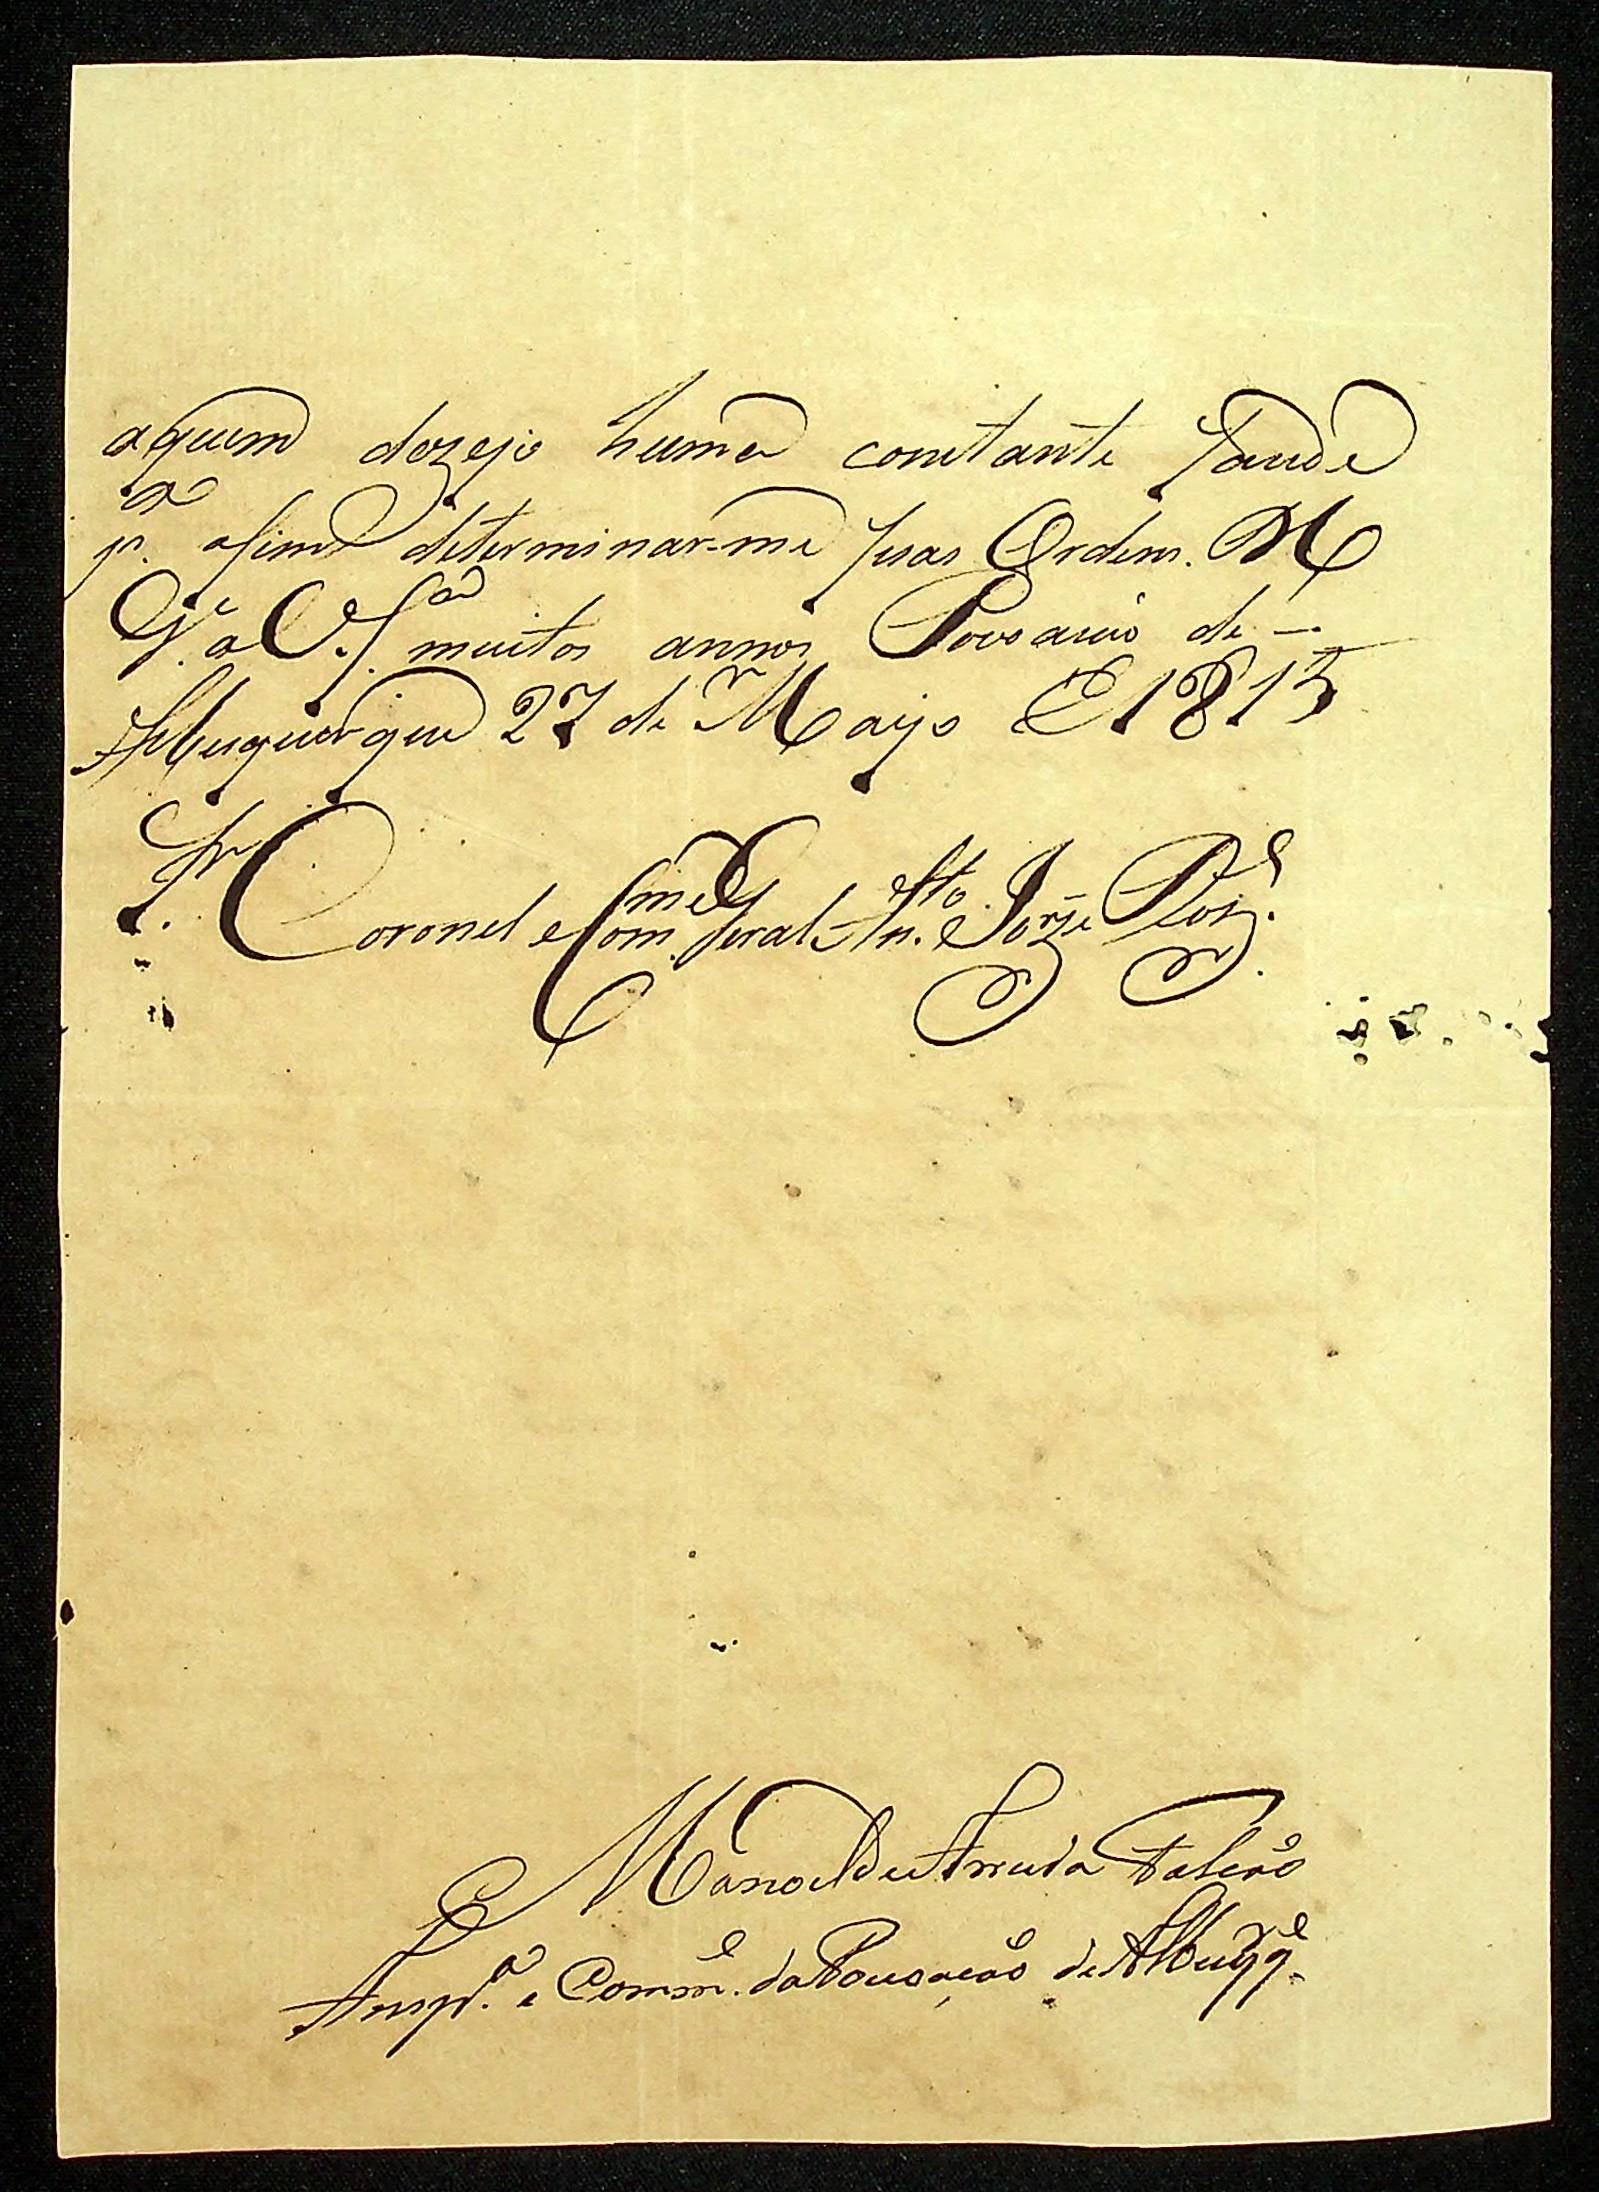 aquem dezejo huma constante saude
pª. afim determinar-me suas Ordens. D
Gᵉ. a V. Sª muitos annos Povoação de —.
Albuquerque 27 de Mayo 1815
Sr. Coronel e Comᵐᵉ Geral Anᵗᵒ. Joze Roiz.
Manoel de Arruda Falcão
Anspª. e Commᵉ. da Povoação de Albuqqᵉ.